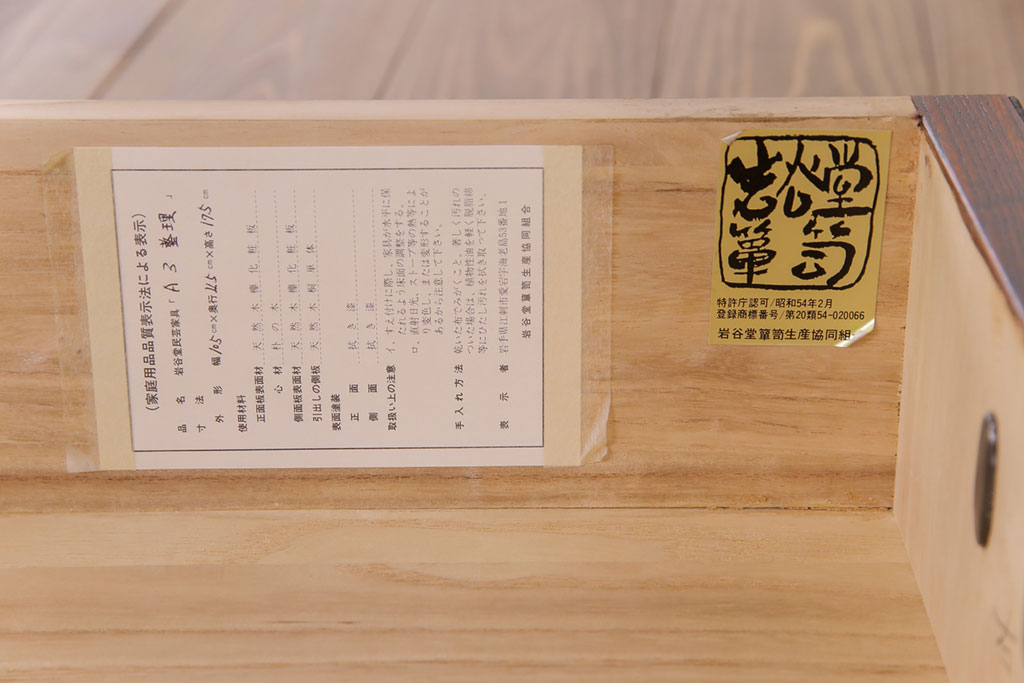 (家庭用品品質表示法による表示)
品名 岩谷堂民芸家具「A3 整理」
寸法
外形 幅105cm×奥行45cm×高さ175cm
使用材料
正面板表面材 天然木欅化粧板
心材 朴の木
側面板表面材 天然木欅化粧板
引出しの側板 天然木桐単体
表面塗装
正面 拭き漆
側面 拭き漆
取扱い上の注意 イ、すえ付けに際し、家具が水平に保
たれるよう床面の調整をする。
ロ、直射日光、ストーブ等の熱等によ
り変色し、または変形することが
あるから注意して下さい。
手入れ方法 乾いた布でみがくこと。著しく汚れの
ついた場合は、植物性油を軽く脱脂綿
等にひたし汚れを拭き取って下さい。
表示者 岩手県江刺市愛宕字海老島53番地1
岩谷堂簞笥生産協同組合
岩谷堂簞笥
特許庁認可/昭和54年2月
登録商標番号/第20類54-020066
岩谷堂簞笥生産協同組